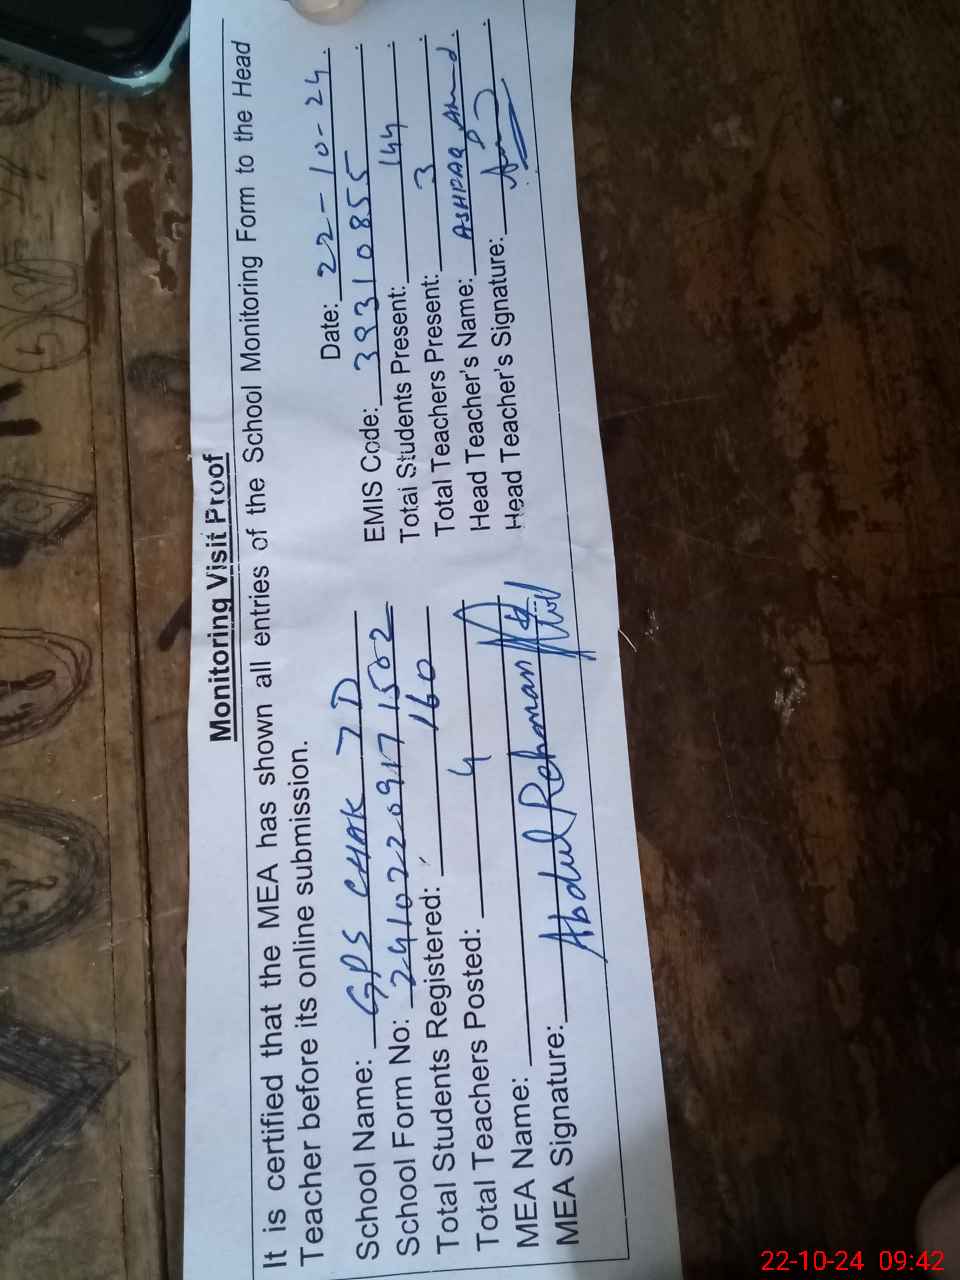 Monitoring Visit Proof
It is certified that the MEA has shown all entries of the School Monitoring Form to the Head
Teacher before its online submission.
Date: 22-10-24
School Name: GPS CHAK 7D
EMIS Code: 39310855
School Form No: 24102209171502
Total Students Present: 144
Total Students Registered: 160
Total Teachers Present: 3
Total Teachers Posted: 4
Head Teacher's Name: ASHFAQ Ahmad
MEA Name: Abdul Rehman
Head Teacher's Signature:
MEA Signature:
22-10-24 09:42